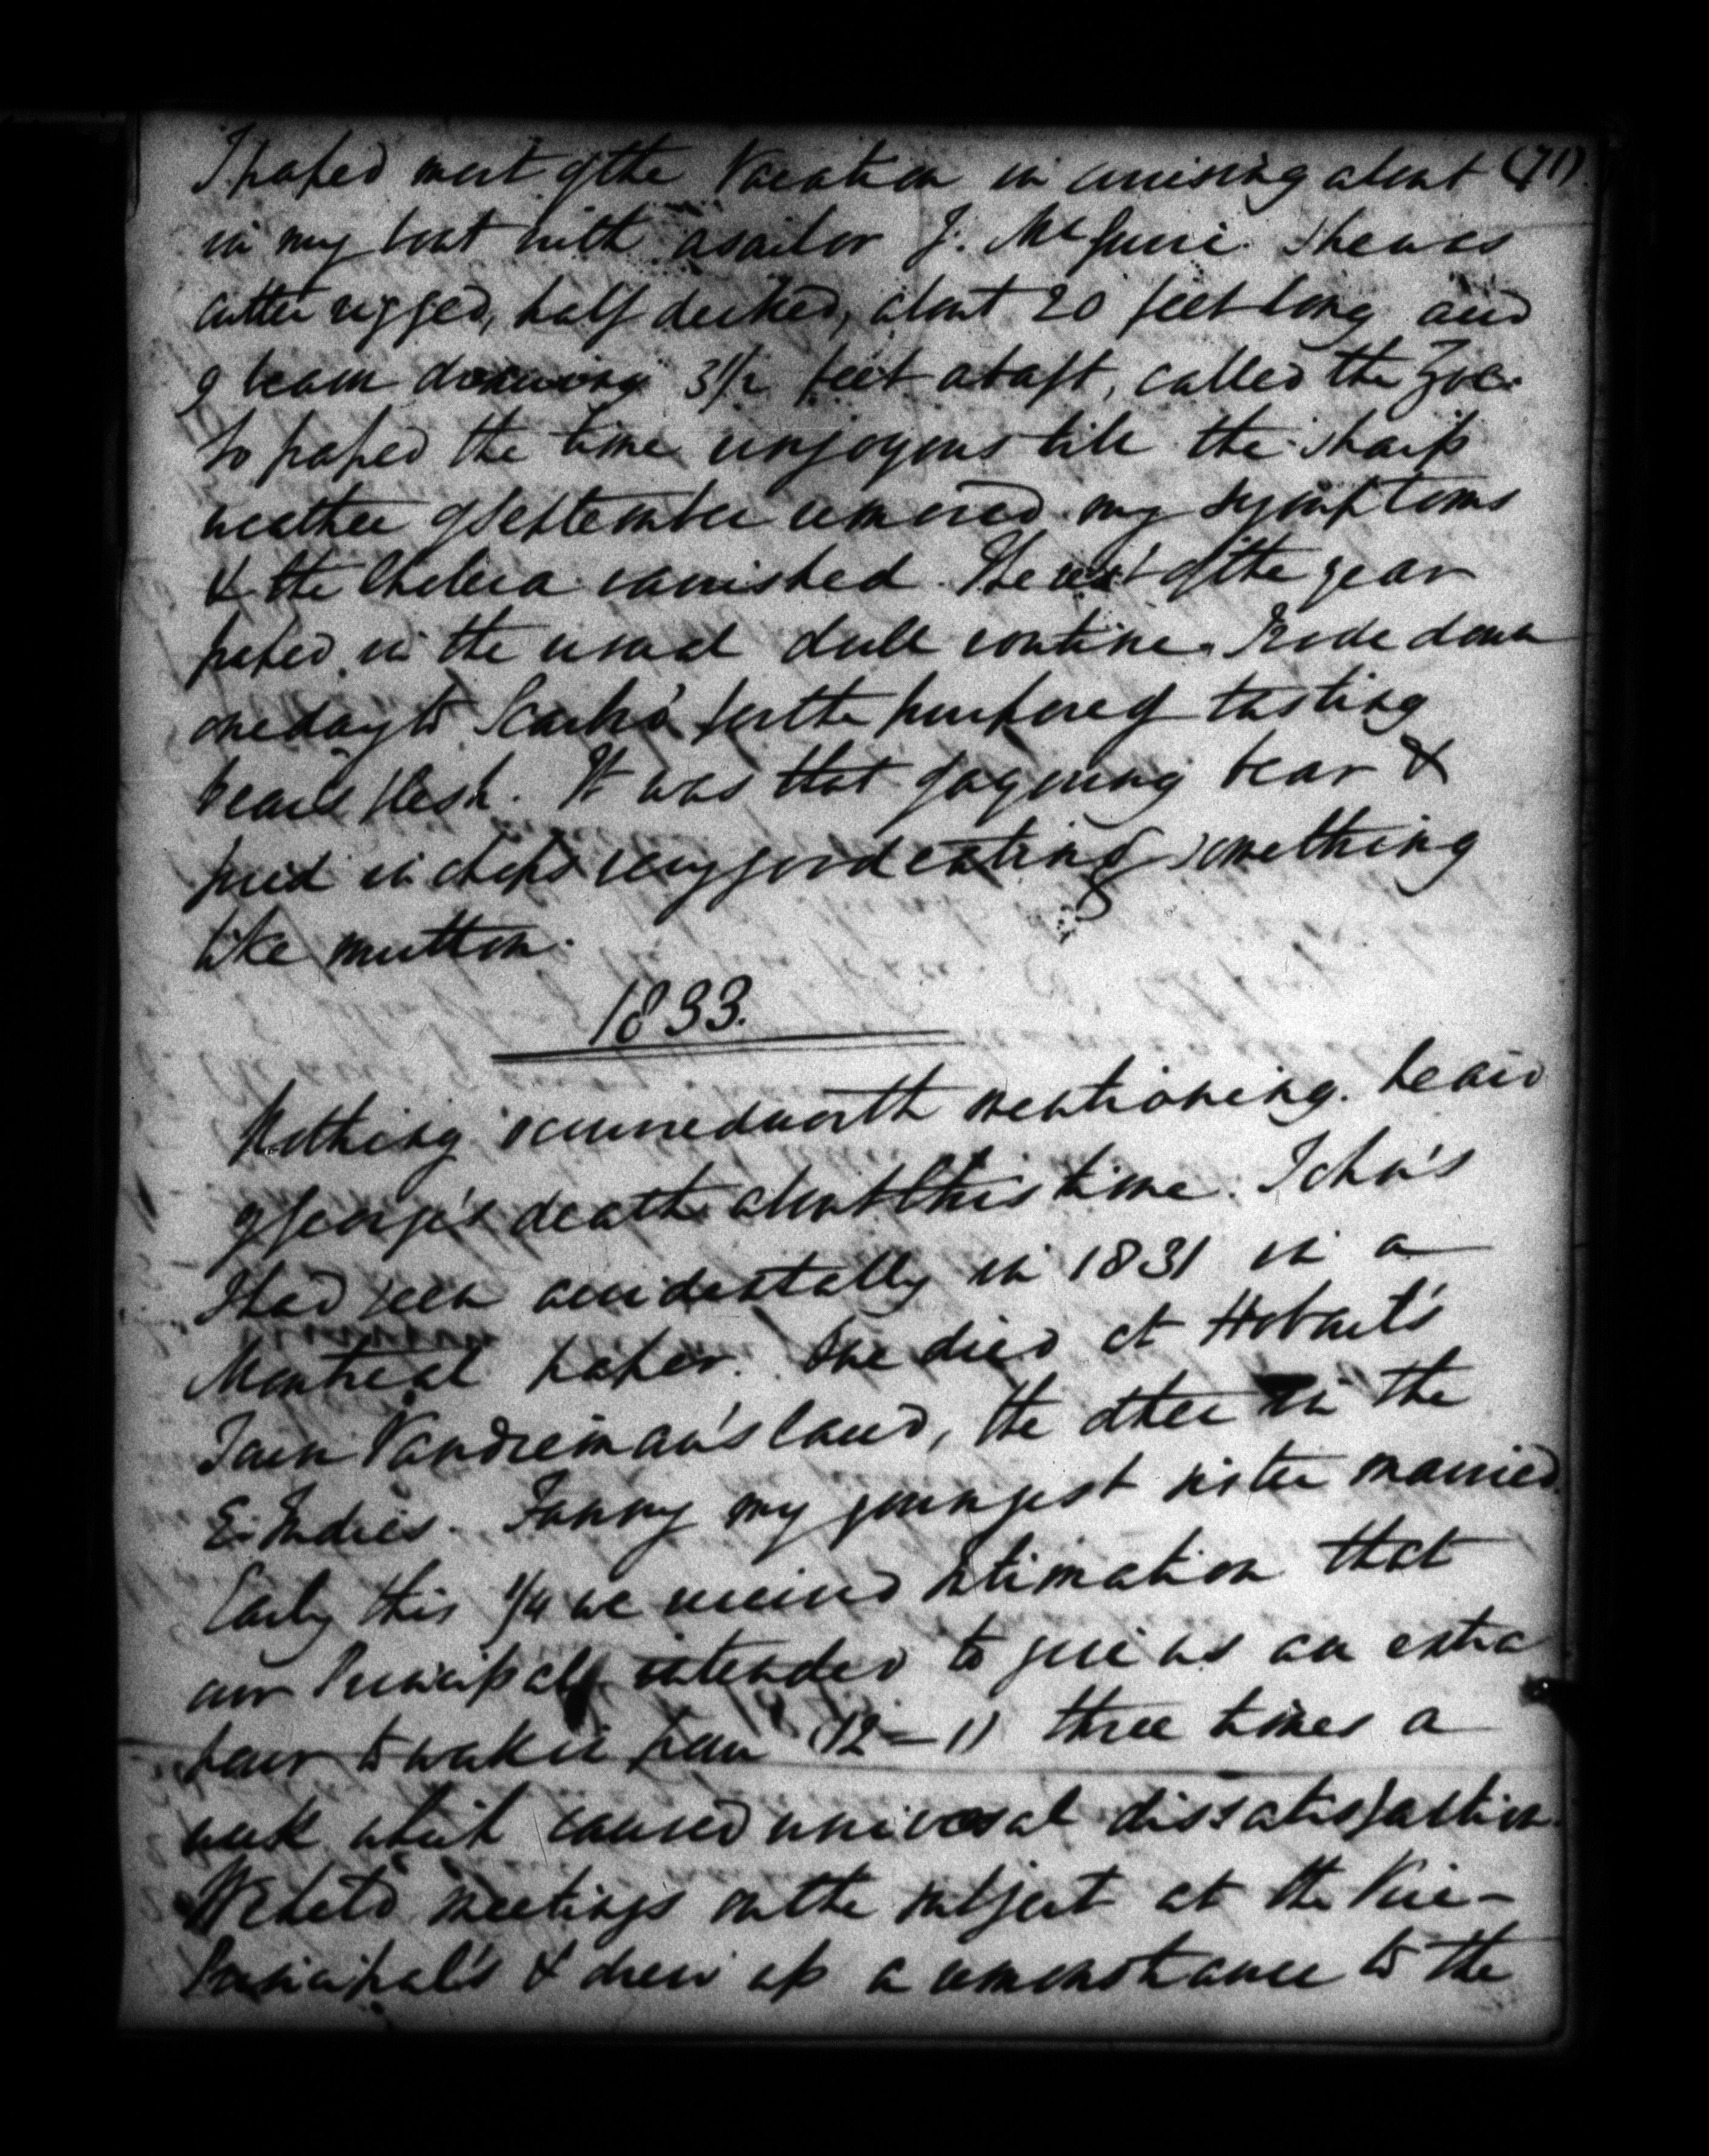 I passed most of the Vacation in cruising about (71)
in my boat with a sailor J. McGuire. She was
cutter rigged, half decked, about 20 feet long and
9 beam drawing 3 1/2 feet abaft, called the Zoe.
So passed the time unjoyous till the sharp
weather of September removed my symptoms
& the Cholera vanished. The rest of the year
passed in the usual dull routine. I rode down
one day to Scarbro' for the purpose of tasting
bear's flesh. It was that of a young bear &
fried in chops very good eating, something
like mutton.
1833.
Nothing occurred worth mentioning. heard
of George's death about this time. John's
I had seen accidentally in 1831 in a
Montreal paper. One died at Hobart's
Town Vandieman's land, the other in the
E. Indies. Fanny my youngest sister married.
Early this 1/4 we received intimation that
our Principal intended to give us an extra
hour to work in from (12-1) three times a
week which caused universal dissatisfaction.
We held meetings on the subject at the Vice-
Principal's & drew up a remonstrance to the